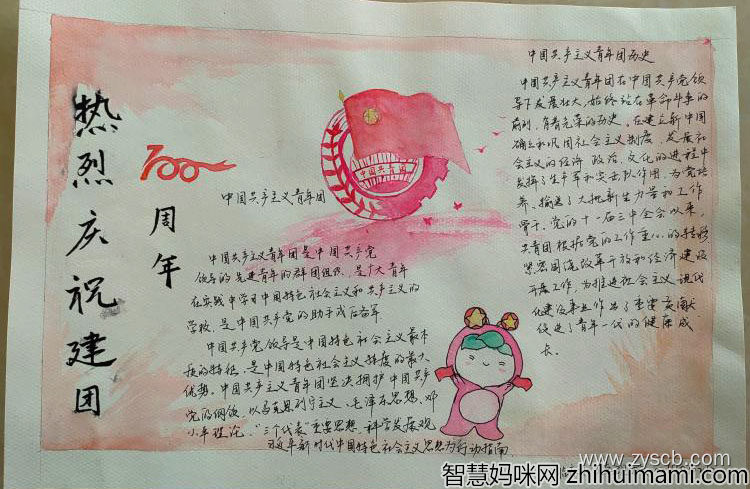 热烈庆祝建团
100
周年
中国共青团
中国共产主义青年团
中国共产主义青年团是中国共产党
领导的先进青年的群团组织，是广大青年
在实践中学习中国特色社会主义和共产主义的
学校，是中国共产党的助手或后备军
中国共产党领导是中国特色社会主义最本
质的特征，是中国特色社会主义制度的最大
优势。中国共产主义青年团坚决拥护中国共产
党的纲领，以马克思列宁主义、毛泽东思想、邓
小平理论、“三个代表”重要思想、科学发展观
习近平新时代中国特色社会主义思想为行动指南
中国共产主义青年团历史
中国共产主义青年团在中国共产党领
导下发展壮大，始终站在革命斗争的
前列，有着光荣的历史。在建立新中国
确立和巩固社会主义制度，发展社
会主义的经济 政治、文化的进程中
发挥了生力军和突击队作用，为党培
养、输送了大批新生力量和工作
骨干。党的十一届三中全会以来，
共青团根据党的工作重心的转移
紧密围绕改革开放和经济建设
开展工作，为推进社会主义现代
化建设事业作出了重要贡献
促进了青年一代的健康成
长。
www.zyscb.com
智慧妈咪网 zhihuimami.com